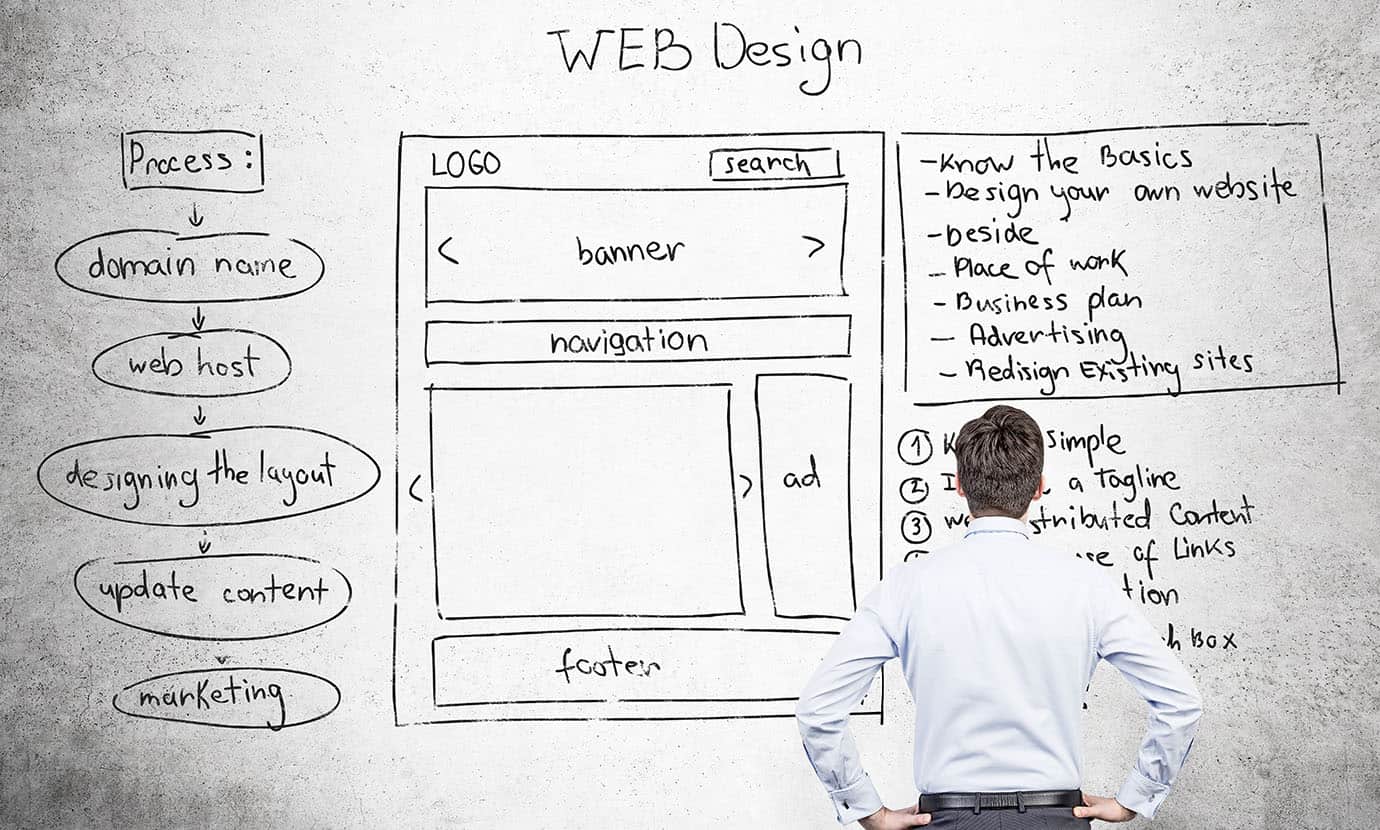 WEB Design
Process :
domain name
web host
designing the layout
update content
marketing
LOGO
search
< banner >
navigation
< >
ad
footer
-Know the Basics
-Design your own website
-beside
- Place of work
- Business plan
- Advertising
- Redisign Existing sites
1 simple
2 a Tagline
3 Content
of Links
Box